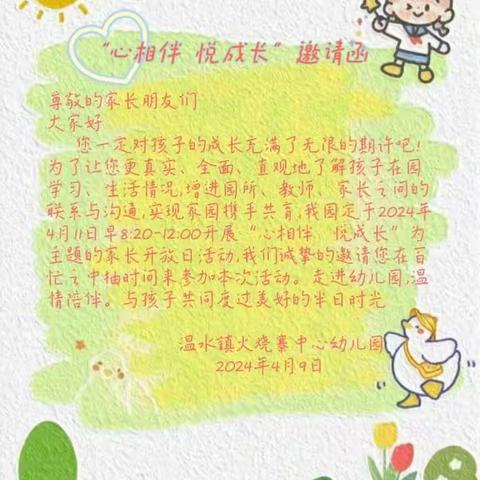 “心相伴 悦成长”邀请函
尊敬的家长朋友们
大家好
您一定对孩子的成长充满了无限的期许吧！
为了让您更真实、全面、直观地了解孩子在园
学习、生活情况,增进园所、教师、家长之间的
联系与沟通,实现家园携手共育,我园定于2024年
4月11日早8:20-12:00开展“心相伴 悦成长”为
主题的家长开放日活动,我们诚挚的邀请您在百
忙之中抽时间来参加本次活动。走进幼儿园,温
情陪伴。与孩子共同度过美好的半日时光
温水镇火烧寨中心幼儿园
2024年4月9日